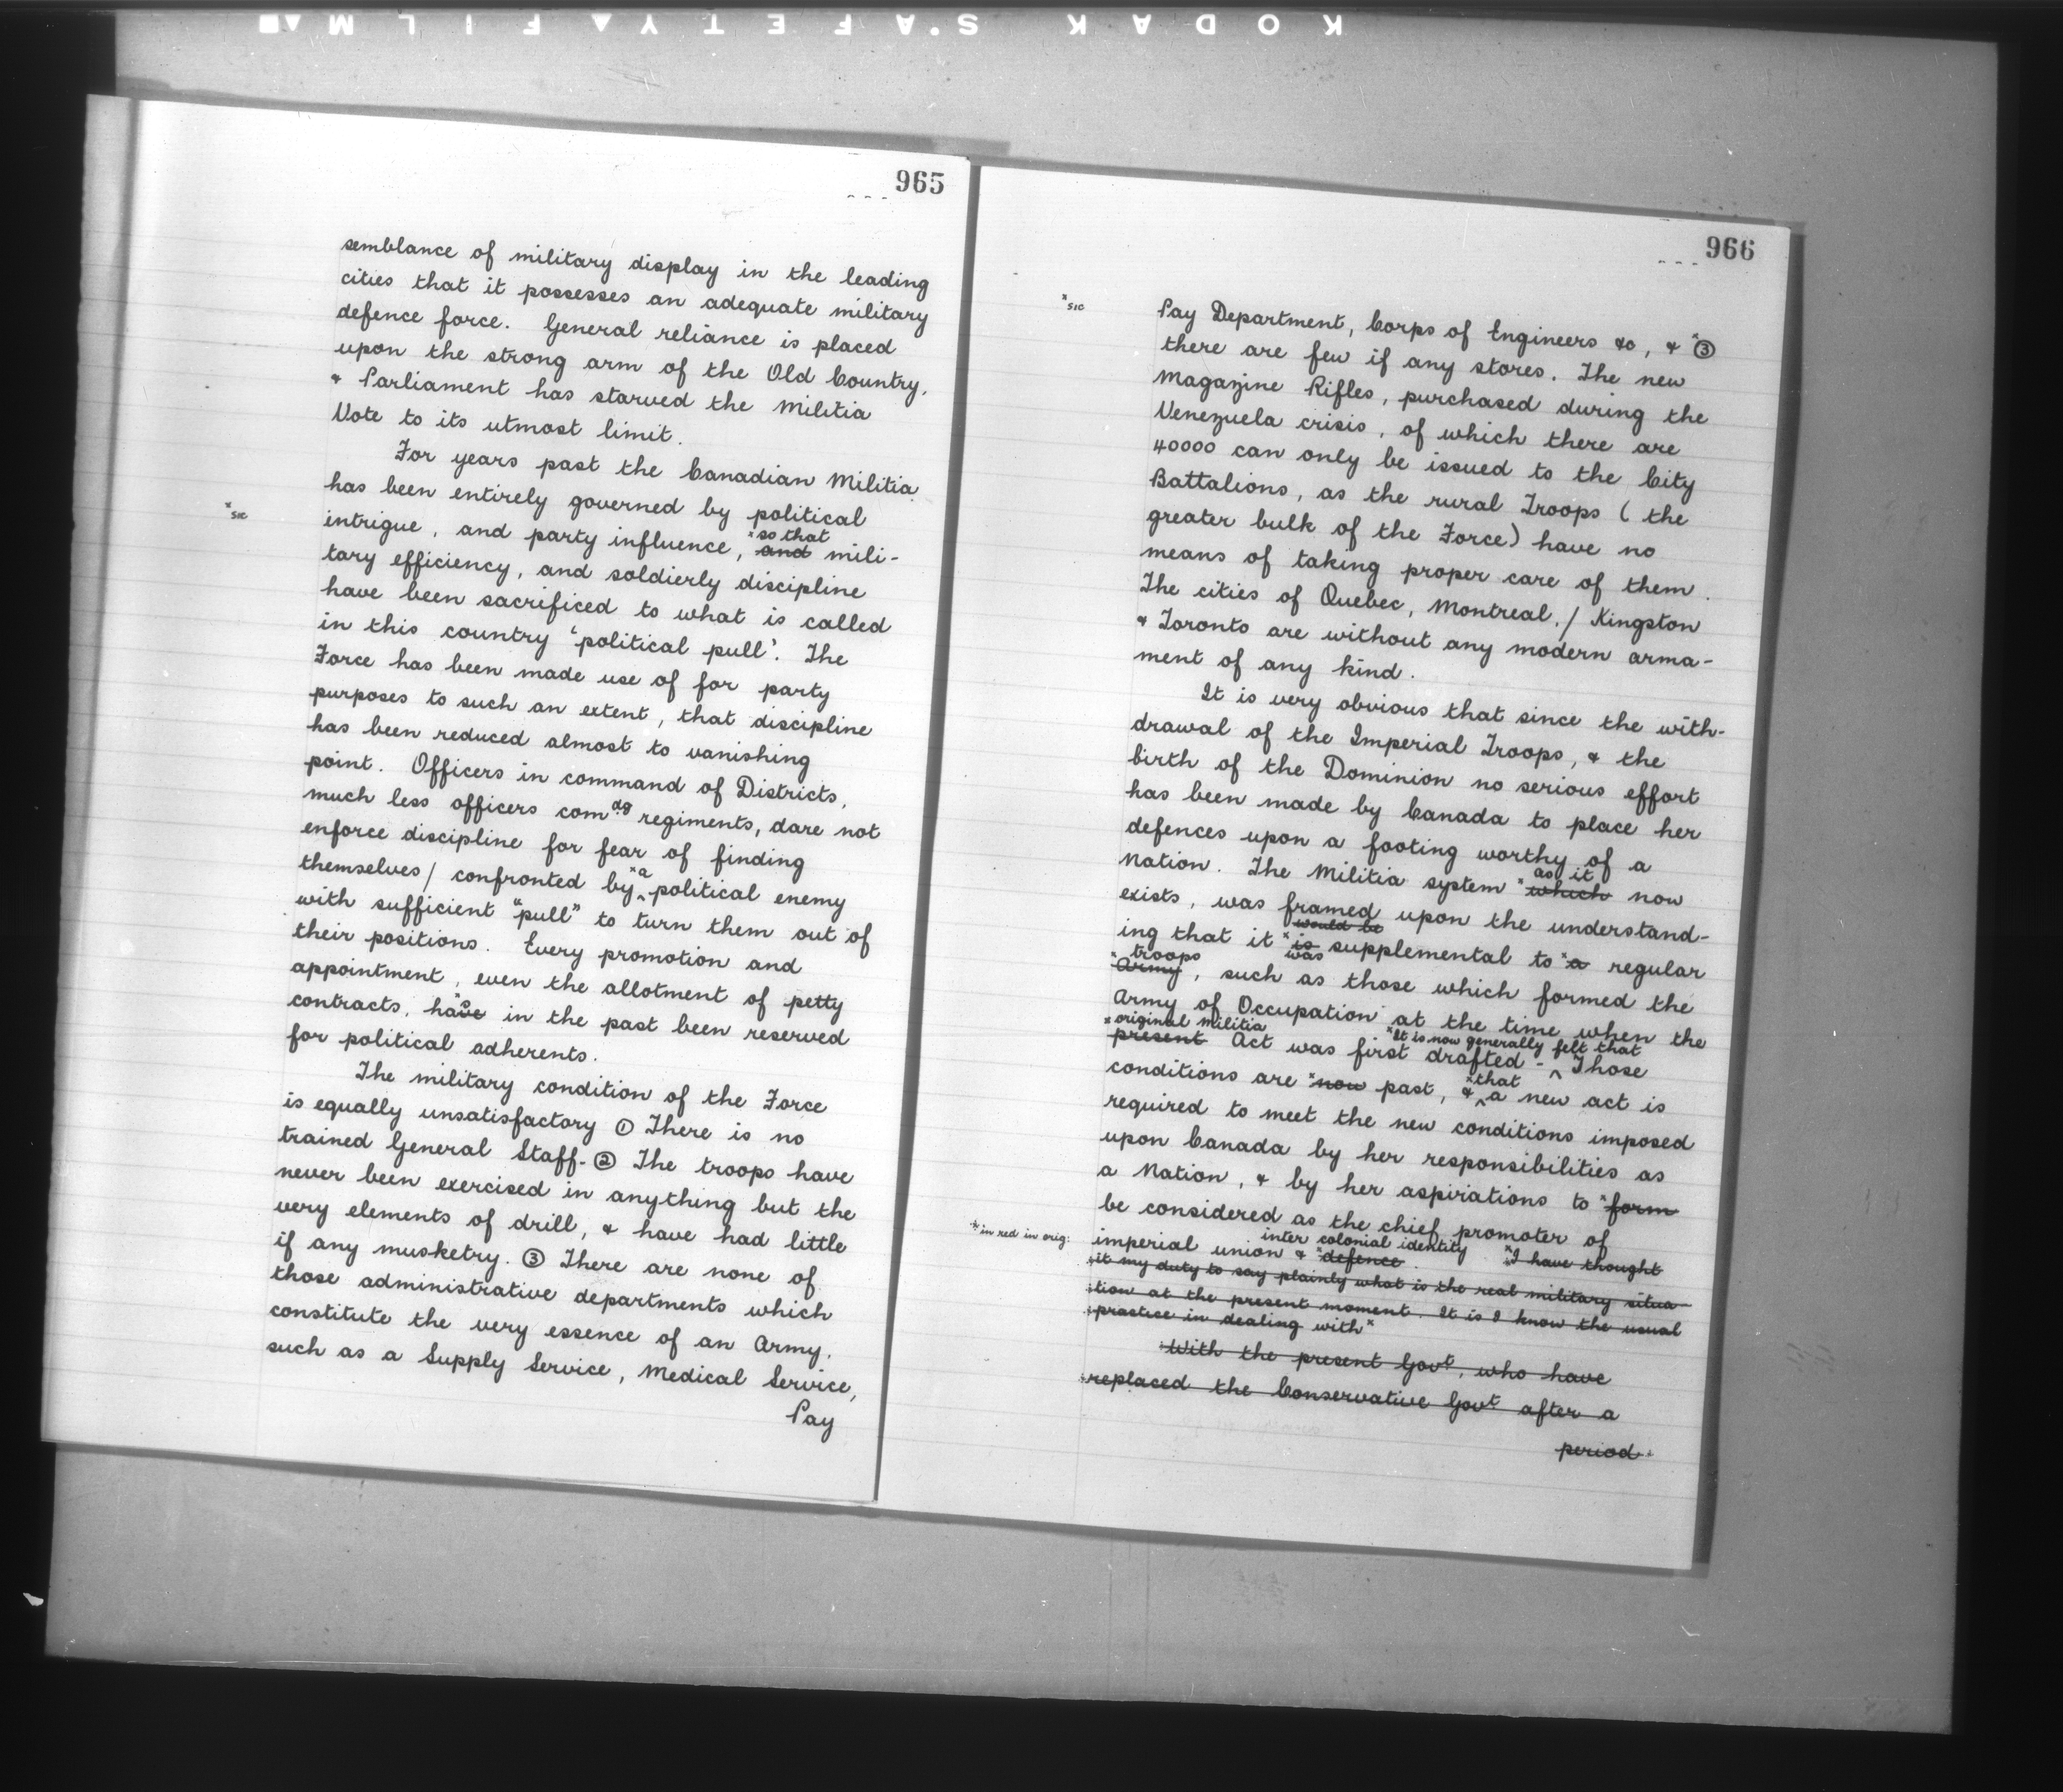 KODAK S.AFETY FILM
965
semblance of military display in the leading
cities that it possesses an adequate military
defence force. General reliance is placed
upon the strong arm of the Old Country,
& Parliament has starved the Militia
Vote to its utmost limit.
For years past the Canadian Militia
has been entirely governed by political
x sic
intrigue, and party influence, x so that and mili-
tary efficiency, and soldierly discipline
have been sacrificed to what is called
in this country 'political pull'. The
Force has been made use of for party
purposes to such an extent, that discipline
has been reduced almost to vanishing
point. Officers in command of Districts,
much less officers comdg regiments, dare not
enforce discipline for fear of finding
themselves/ confronted by x a political enemy
with sufficient "pull" to turn them out of
their positions. Every promotion and
appointment, even the allotment of petty
contracts, have x s in the past been reserved
for political adherents.
The military condition of the Force
is equally unsatisfactory ① There is no
trained General Staff- ② The troops have
never been exercised in anything but the
very elements of drill, & have had little
if any musketry. ③ There are none of
those administrative departments which
constitute the very essence of an Army,
such as a Supply Service, Medical Service,
Pay
966
x sic
Pay Department, Corps of Engineers &c, & x ③
there are few if any stores. The new
Magazine Rifles, purchased during the
Venezuela crisis, of which there are
40000 can only be issued to the City
Battalions, as the rural Troops (the
greater bulk of the Force) have no
means of taking proper care of them.
The cities of Quebec, Montreal,/ Kingston
& Toronto are without any modern arma-
ment of any kind.
It is very obvious that since the with-
drawal of the Imperial Troops, & the
birth of the Dominion no serious effort
has been made by Canada to place her
defences upon a footing worthy of a
Nation. The Militia system x which as it now
exists, was framed upon the understand-
ing that it x is would be was supplemental to x a regular
x Army troops, such as those which formed the
Army of Occupation at the time when the
x present original Militia Act was first drafted - x It is now generally felt that Those
conditions are x now past, & x that a new act is
required to meet the new conditions imposed
upon Canada by her responsibilities as
a Nation, & by her aspirations to x form
be considered as the chief promoter of
x in red in orig:
imperial union & x defence inter colonial identity. x I have thought
it my duty to say plainly what is the real military situa-
tion at the present moment. It is I know the usual
practice in dealing with x
With the present Govt, who have
replaced the Conservative Govt after a
period